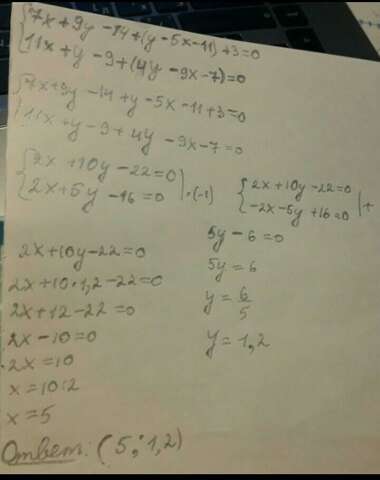 {7x+9y-14+(y-5x-11)+3=0
{11x+y-9+(4y-9x-7)=0
{7x+9y-14+y-5x-11+3=0
{11x+y-9+4y-9x-7=0
{2x+10y-22=0
{2x+5y-16=0 |·(-1)
{2x+10y-22=0
{-2x-5y+16=0 |+
5y-6=0
5y=6
y=6/5
y=1,2
2x+10y-22=0
2x+10·1,2-22=0
2x+12-22=0
2x-10=0
2x=10
x=10:2
x=5
Ответ: (5;1,2)